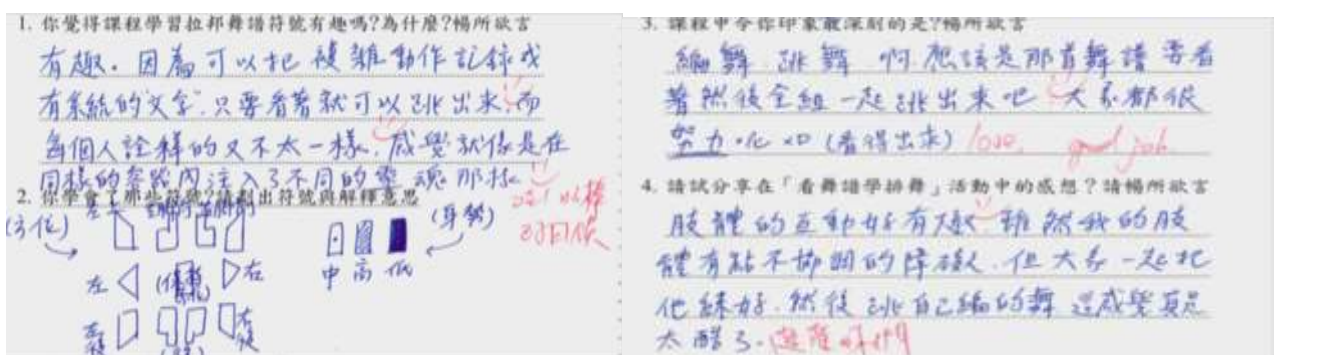 1. 你覺得課程學習拉邦舞譜符號有趣嗎?為什麼?暢所欲言
有趣。因為可以把複雜動作記錄成
有系統的"文字",只要看著就可以跳出來,而
每個人詮釋的又不太一樣,感覺就像是在
同樣的套路內注入了不同的靈魂那樣
2. 你學會了那些符號?請劃出符號與解釋意思
(方位)
(身勢)
左 右
中 高 低
3. 課程中令你印象最深刻的是?暢所欲言
編舞 跳舞 啊 應該是那首舞譜 要看
著然後全組一起跳出來吧 大家都很
努力 xD (看得出來) love, good job
4. 請試分享在「看舞譜學排舞」活動中的感想?請暢所欲言
肢體的互動好有趣 雖然我的肢
體有點不協調的障礙,但大家一起把
他練好,然後跳自己編的舞 這感覺真是
太酷了。